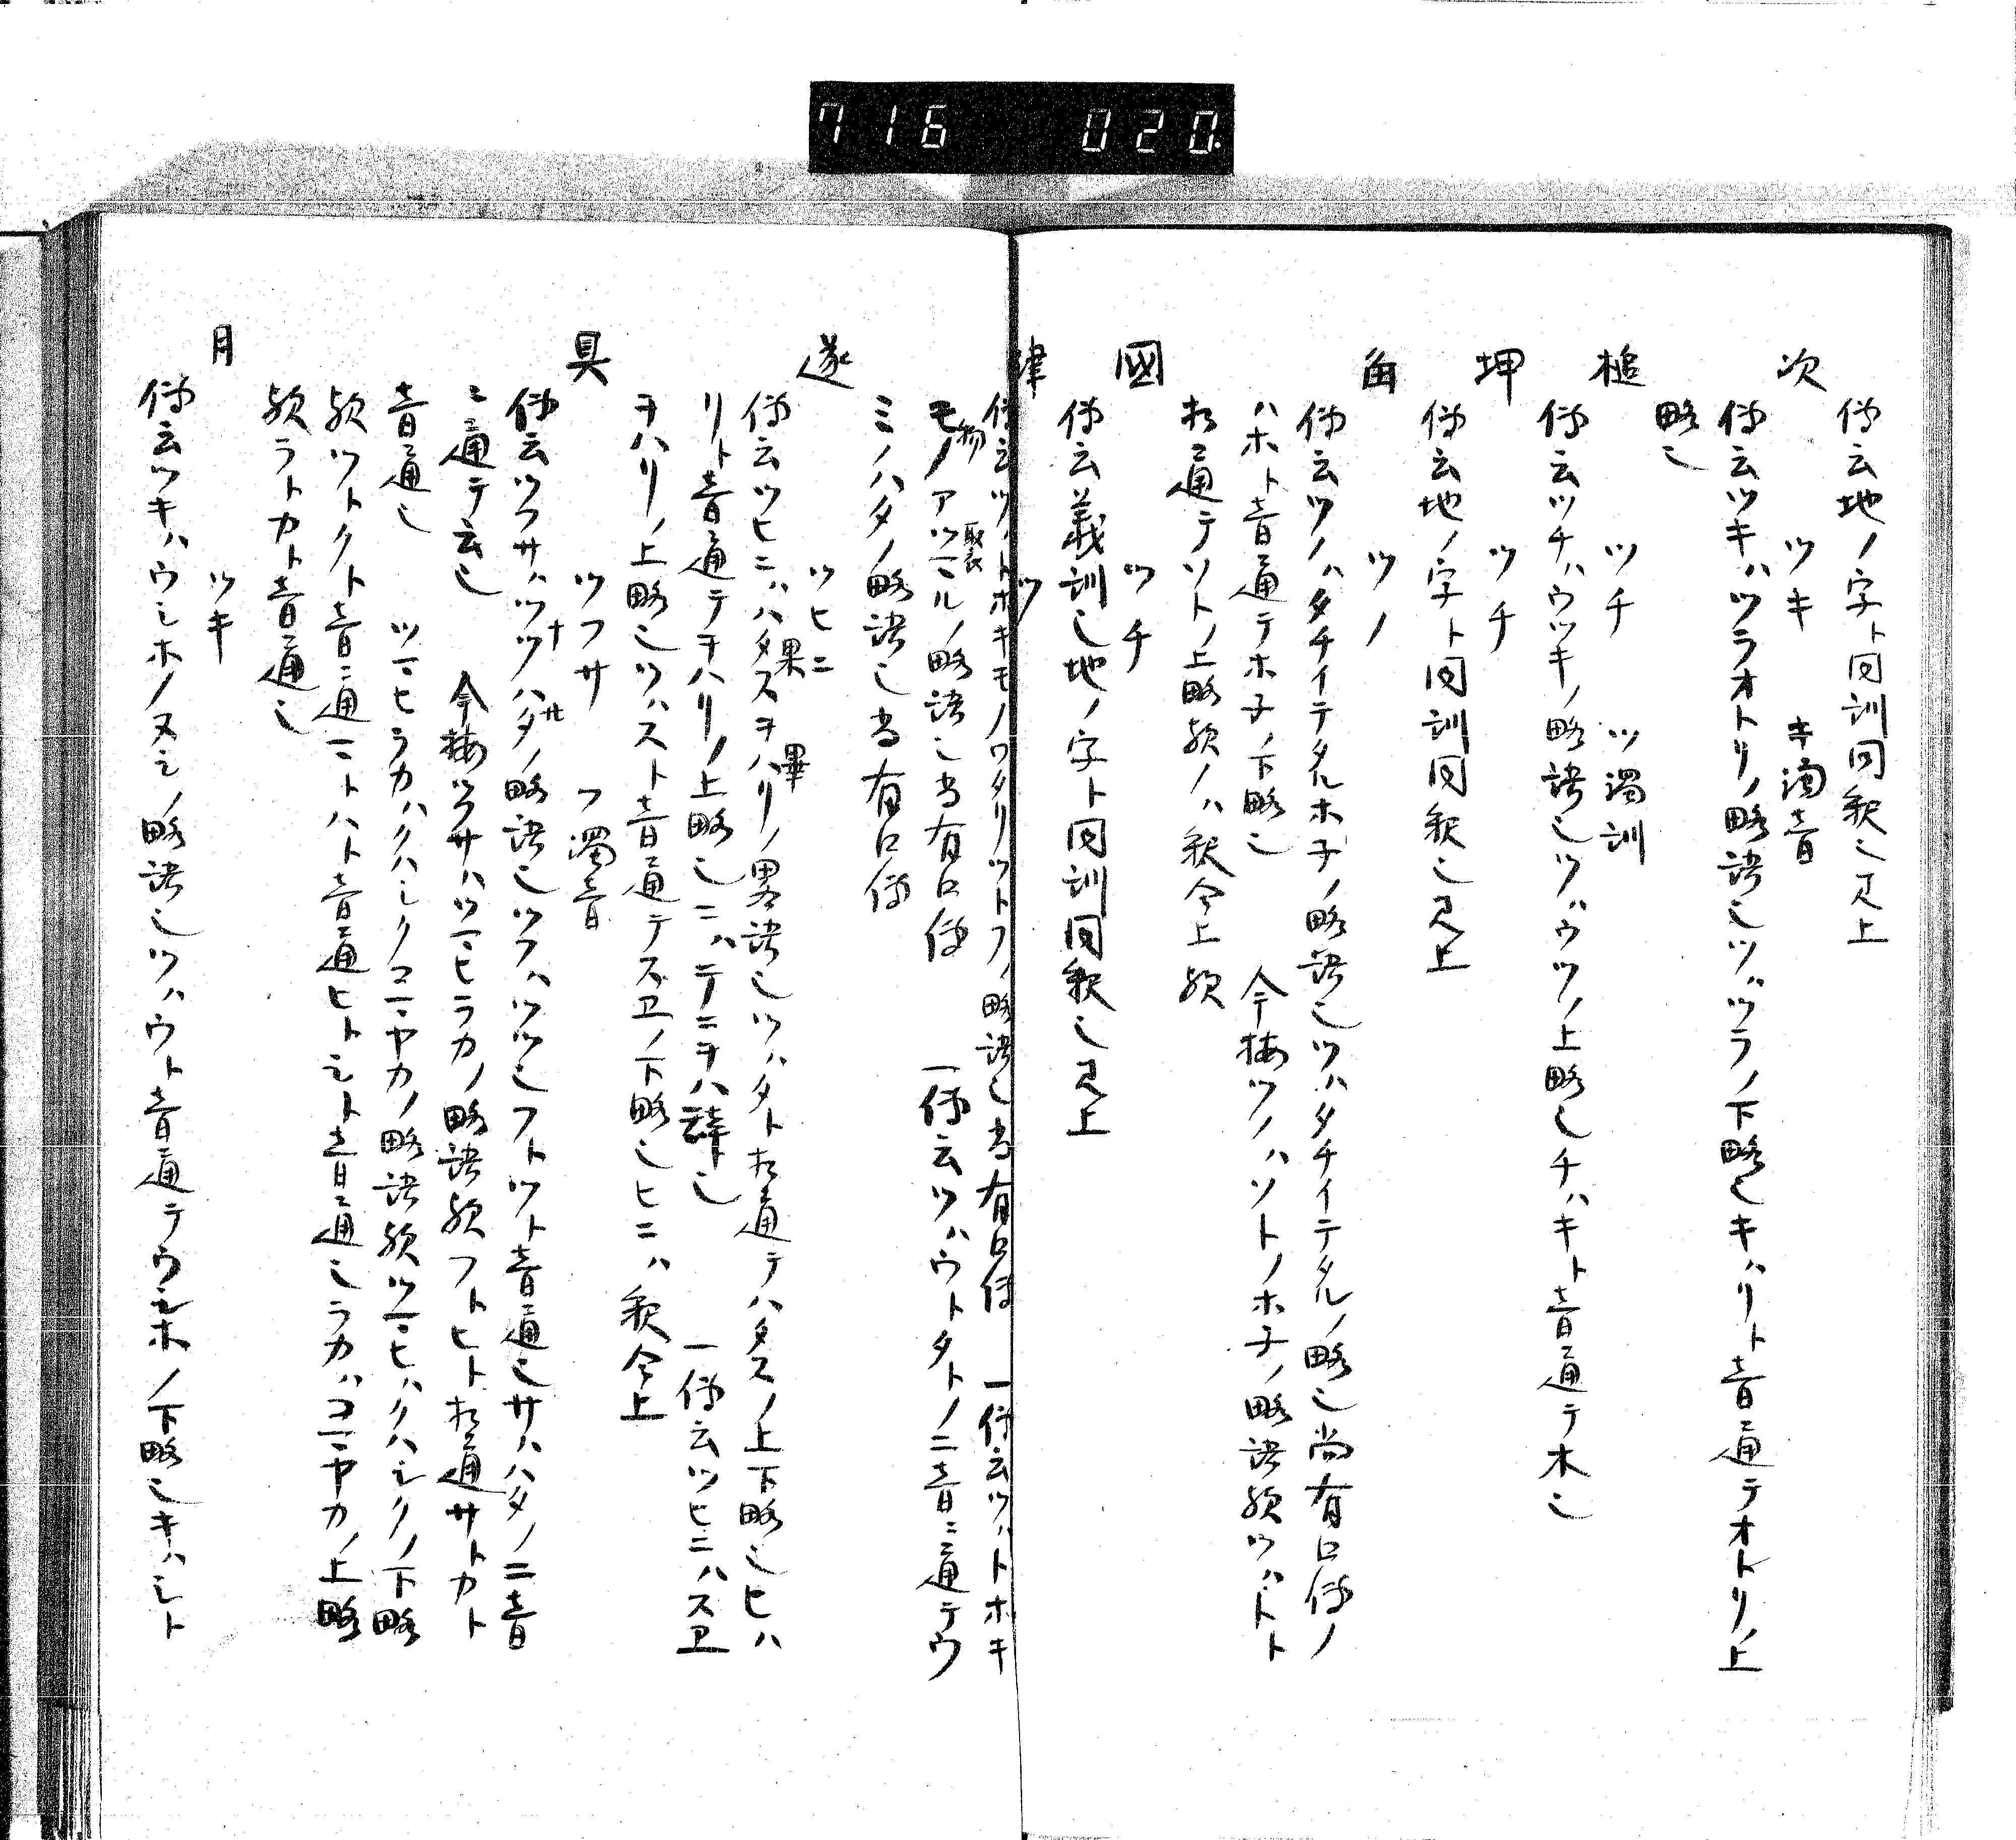 716 020
傳云地ノ字ト同訓同釈也見上
次 ツキ キ濁音
傳云ツキハツラオトリノ略語也ツハツラノ下略也キハリト音通テオトリノ上
略也
槌 ツチ ツ濁訓
傳云ツチハウツキノ略語也ツハウツノ上略也チハキト音通テ木也
坤 ツチ
傳云地ノ字ト同訓同釈也見上
角 ツノ
傳云ツノハタチイテタルホネノ略語也ツハタチイテタルノ略也尚有口傳ノ
ハホト音通テホネノ下略也 今按ツノハソトノホネノ略語歟ツハトト
相通テソトノ上略歟ノハ釈全上歟
國 ツチ
傳云義訓也地ノ字ト同訓同釈也見上
津 ツ
傳云ツハトホキモノワタリツトフノ略語也尚有口傳 一傳云ツハトホキ
モノ物アツマル聚ノ略語也尚有口傳 一傳云ツハウトタトノ二音ニ通テウ
ミノハタノ略語也尚有口傳
遂 ツヒニ
傳云ツヒニハハタス果ヲハリ畢ノ略語也ツハタト相通テハタスノ上下略也ヒハ
リト音通テヲハリノ上略也ニハテニヲハ辞也 一傳云ツヒニハスヱ
ヲハリノ上略也ツハスト音通テスヱノ下略也ヒニハ釈全上
具 ツフサ フ濁音
傳云ツフサハツツハタノ略語也ツフハツツ也フトツト音通也サハハタノ二音
ニ通テ云也 今按ツフサハツマヒラカノ略語歟フトヒト相通サトカト
音通也 ツマヒラカハクハシクコマヤカノ略語歟ツマヒハクハシクノ下略
歟ツトクト音通マトハト音通ヒトシト音通也ラカハコマヤカノ上略
歟ラトカト音通也
月 ツキ
傳云ツキハウシホノヌシノ略語也ツハウト音通テウシホノ下略也キハシト